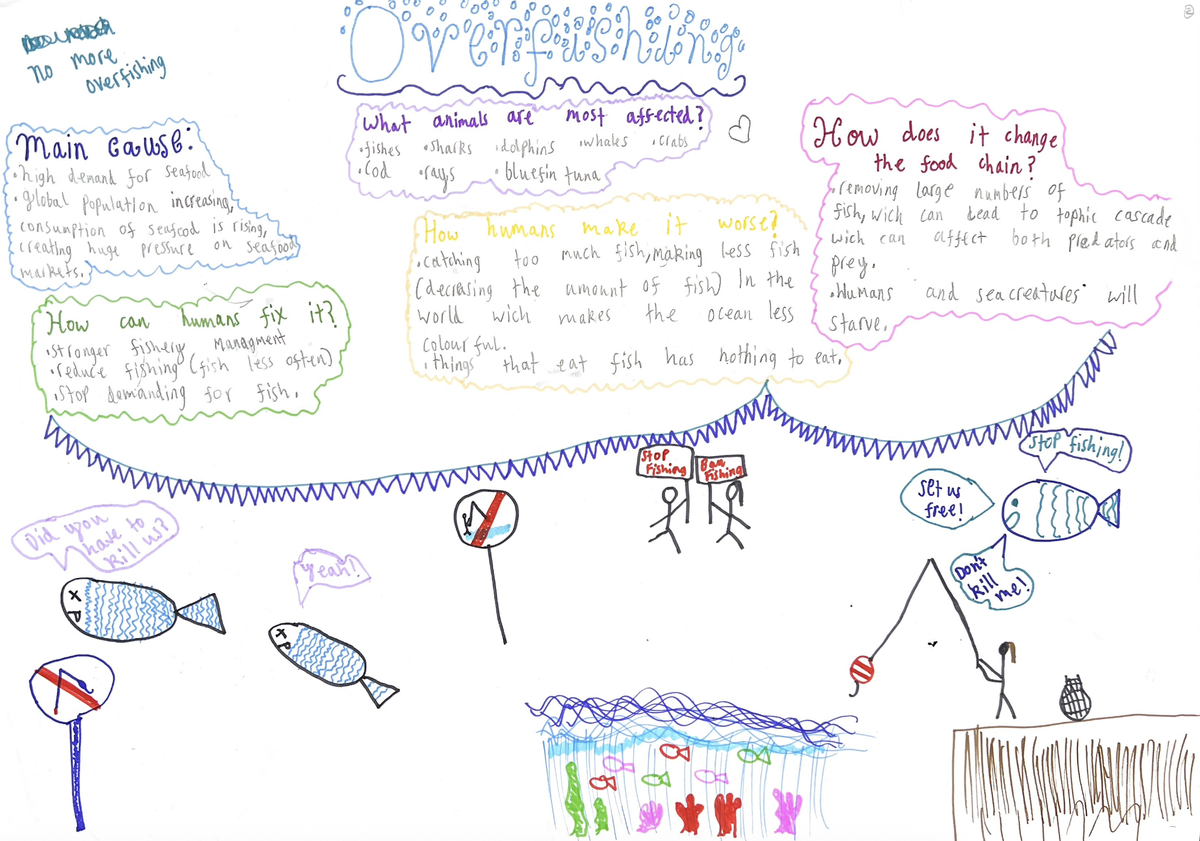 no more
overfishing
Overfishing
What animals are most affected?
•fishes •sharks •dolphins •whales •crabs
•cod •rays •bluefin tuna
Main cause:
•high demand for seafood
•global population increasing,
consumption of seafood is rising,
creating huge pressure on seafood
markets.
How does it change
the food chain?
•removing large numbers of
fish, wich can lead to tophic cascade
wich can affect both predators and
prey.
•Humans and seacreatures will
starve.
How humans make it worse?
•catching too much fish, making less fish
(decrasing the amount of fish) In the
world wich makes the ocean less
colourful.
•things that eat fish has nothing to eat.
How can humans fix it?
•stronger fishery managment
•reduce fishing (fish less often)
•stop demanding for fish.
Stop
Fishing
Ban
Fishing
Stop fishing!
Set us
free!
Don't
kill
me!
Did you
have to
kill us?
Yeah!